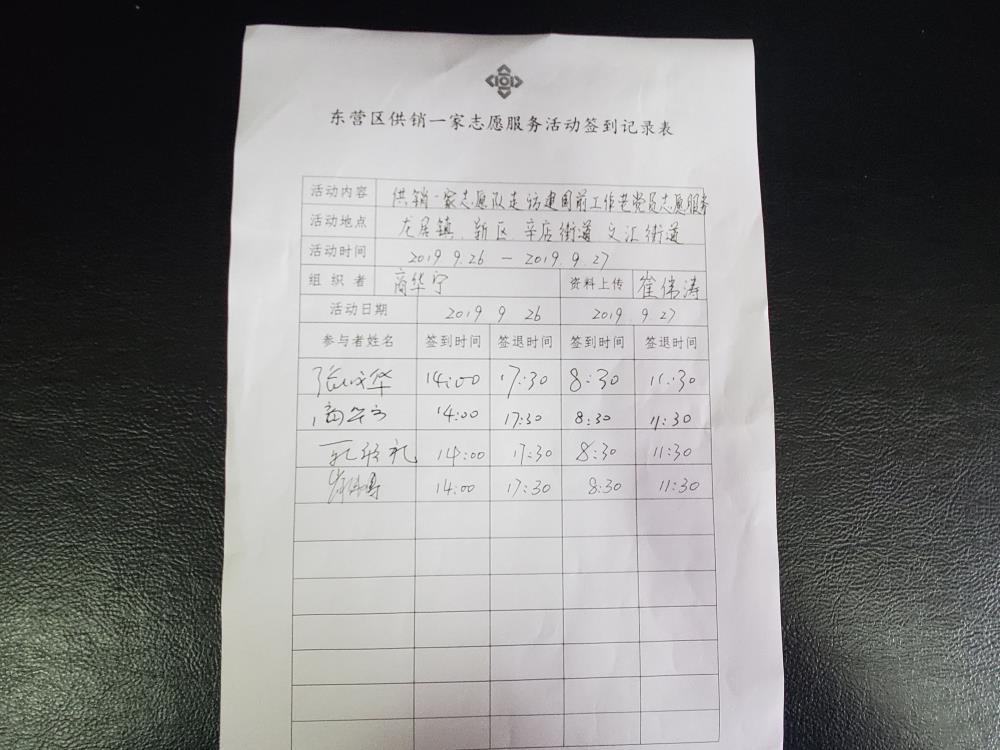 东营区供销一家志愿服务活动签到记录表
活动内容 供销一家志愿队走访建国前工作老党员志愿服务
活动地点 龙居镇、新区、辛店街道 文汇街道
活动时间 2019 9.26 — 2019.9.27
组织者 商华宁 资料上传 崔伟涛
活动日期 2019 9 26 2019. 9.27
参与者姓名 签到时间 签退时间 签到时间 签退时间
14:00 17:30 8:30 11:30
商华宁 14:00 17:30 8:30 11:30
14:00 17:30 8:30 11:30
14:00 17:30 8:30 11:30